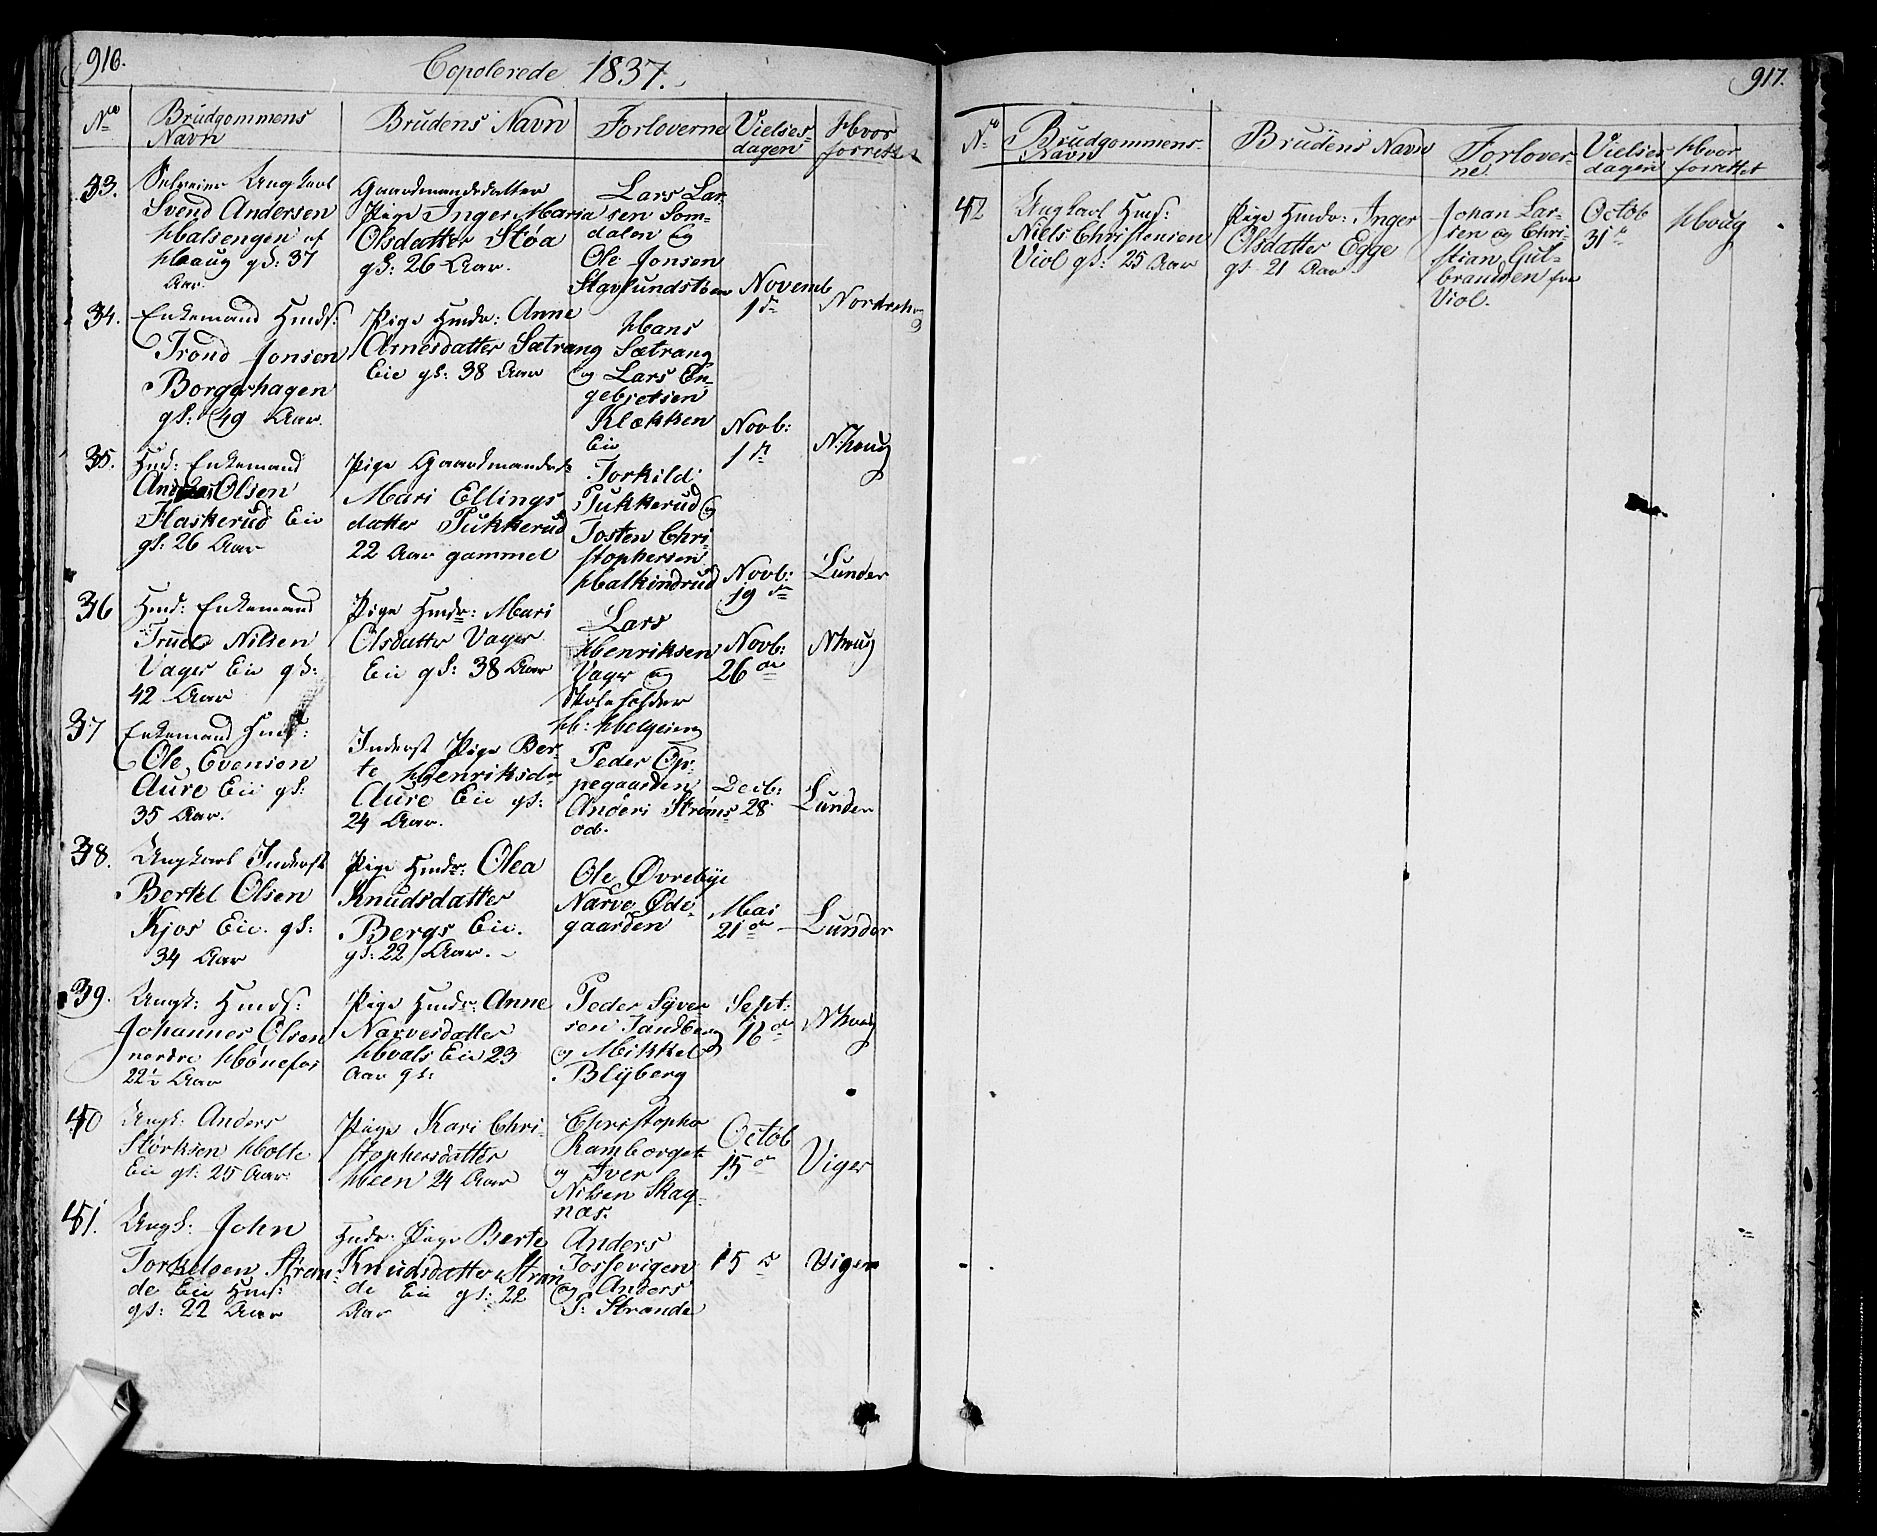 916.
Copolerede 1837.
No
Brudgommens Navn
Brudens Navn
Forloverne
Vielses-dagen
Hvor forrettet
33.
Selveier Ungkarl
Svend Andersen
Halsengen af
Houg gl: 37
Aar.
Gaardmandsdatter
Pige Inger Maria
Olsdatter Støa
gl: 26 Aar.
Lars Lar-
sen Som-
dalen og
Ole Jonsen
Stavlundstøen
Novemb
1ste
Nordreho
34.
Enkemand Hmds:
Trond Jonsen
Borgerhagen
gl: 49 Aar.
Pige Hmdr: Anne
Arnesdatter Sætrang
Eie gl: 38 Aar
Hans
Sætrang
og Lars En-
gebretsen
Klækken
Eie
Novb:
1ste
N:houg
35.
Hmd: Enkemand
Olsen
Flaskerud Eie
gl: 26 Aar
Pige Gaardmandsd
Mari Ellings
datter Pukkerud
22 Aar gammel
Torkild
Pukkerud og
Tosten Chri-
stophersen
Halkindrud
Novb:
19de
Lunder
36
Hmd: Enkemand
Truls Nilsen
Vager Eie gl:
42 Aar
Pige Hmdr: Mari
Olsdatter Vager
Eie gl: 38 Aar
Lars
Henriksen
Vager og
Skoleholder
H: Helgesen
Novb:
26de
Nhoug
37
Enkemand Hmds:
Ole Evensen
Aure Eie gl:
35 Aar.
Inderst Pige Ber-
te Henriksdr
Aure Eie gl:
24 Aar.
Peder Op-
pegaarden
Anders Strøms-
od.
Decb:
28
Lunder
38.
Ungkarl Inderst
Bertel Olsen
Kjos Eie. gl:
34 Aar
Pige Hmdr: Olea
Knudsdatter
Bergs Eie.
gl: 22 Aar.
Ole Øvrebye
Narve Øde-
gaarden
Mai
21de
Lunder
39.
Ungk: Hmds:
Johannes Olsen
nordre Hønefos
22½ Aar
Pige Hmdr: Anne
Narvesdatter
Hvals Eie 23
Aar gl:
Peder Syver-
sen Tandberg
og Mikkel
Blyberg
Sept:
16de
Nhoug
40
Ungk: Anders
Størksen Holte
Eie gl: 25 Aar.
Pige Kari Chri-
stophersdatter
Heen 24 Aar
Christopher
Ramborget
og Iver
Nilsen Skag-
næs.
Octob
15de
Viger
41.
Ungk: John
Torkelsen Stran-
de Eie Hmds:
gl: 22 Aar
Hmdr: Pige Berte
Knudsdatter Stran
de Eie gl: 22
Aar
Anders
Tossevigen
og Anders
P: Strande
15de
Viger
917.
No
Brudgommens Navn
Brudens Navn
Forlover-ne
Vielses dagen
Hvor forrettet
42
Ungkarl Hmds:
Niels Christensen
Viol gl: 25 Aar
Pige Hmdr: Inger
Olsdatter Egge
gl 21 Aar.
Johan Lar-
sen og Chri-
stian Gul-
brandsen fra
Viol.
Octob
31te
Houg